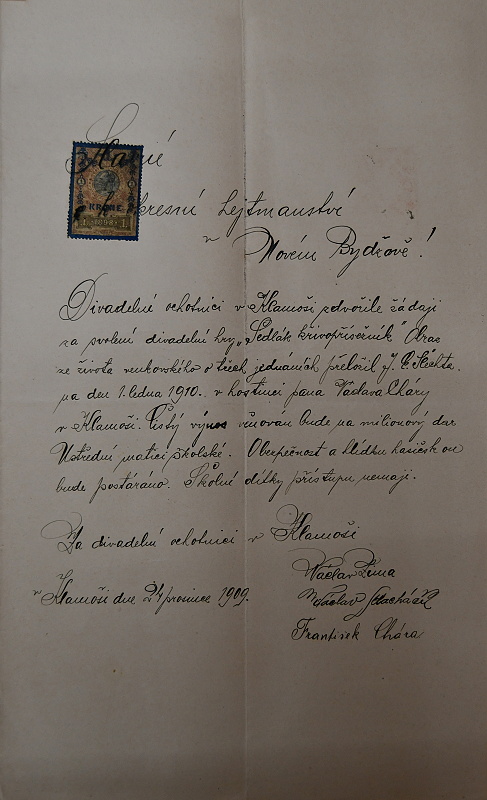 Slavné
KRONE
1 1898 1
okresní hejtmanství
v Novém Bydžově!
Divadelné ochotníci v Klamoši zdvořile žádají
za svolení divadelní hry „Sedlák křivopřísežník" Obraz
ze života venkovského o třech jednáních přeložil J. L. Šlechta.
na den 1. ledna 1910. v hostinci pana Václava Cháry
v Klamoši. Čistý výnos věnován bude na milionový dar
Ústřední matici školské. O bezpečnost a hlídku hasičskou
bude postaráno. Školné dítky přístupu nemají.
Za divadelné ochotníci v Klamoši
Václav Zima
v Klamoši dne 24 prosince 1909.
Václav
František Chára